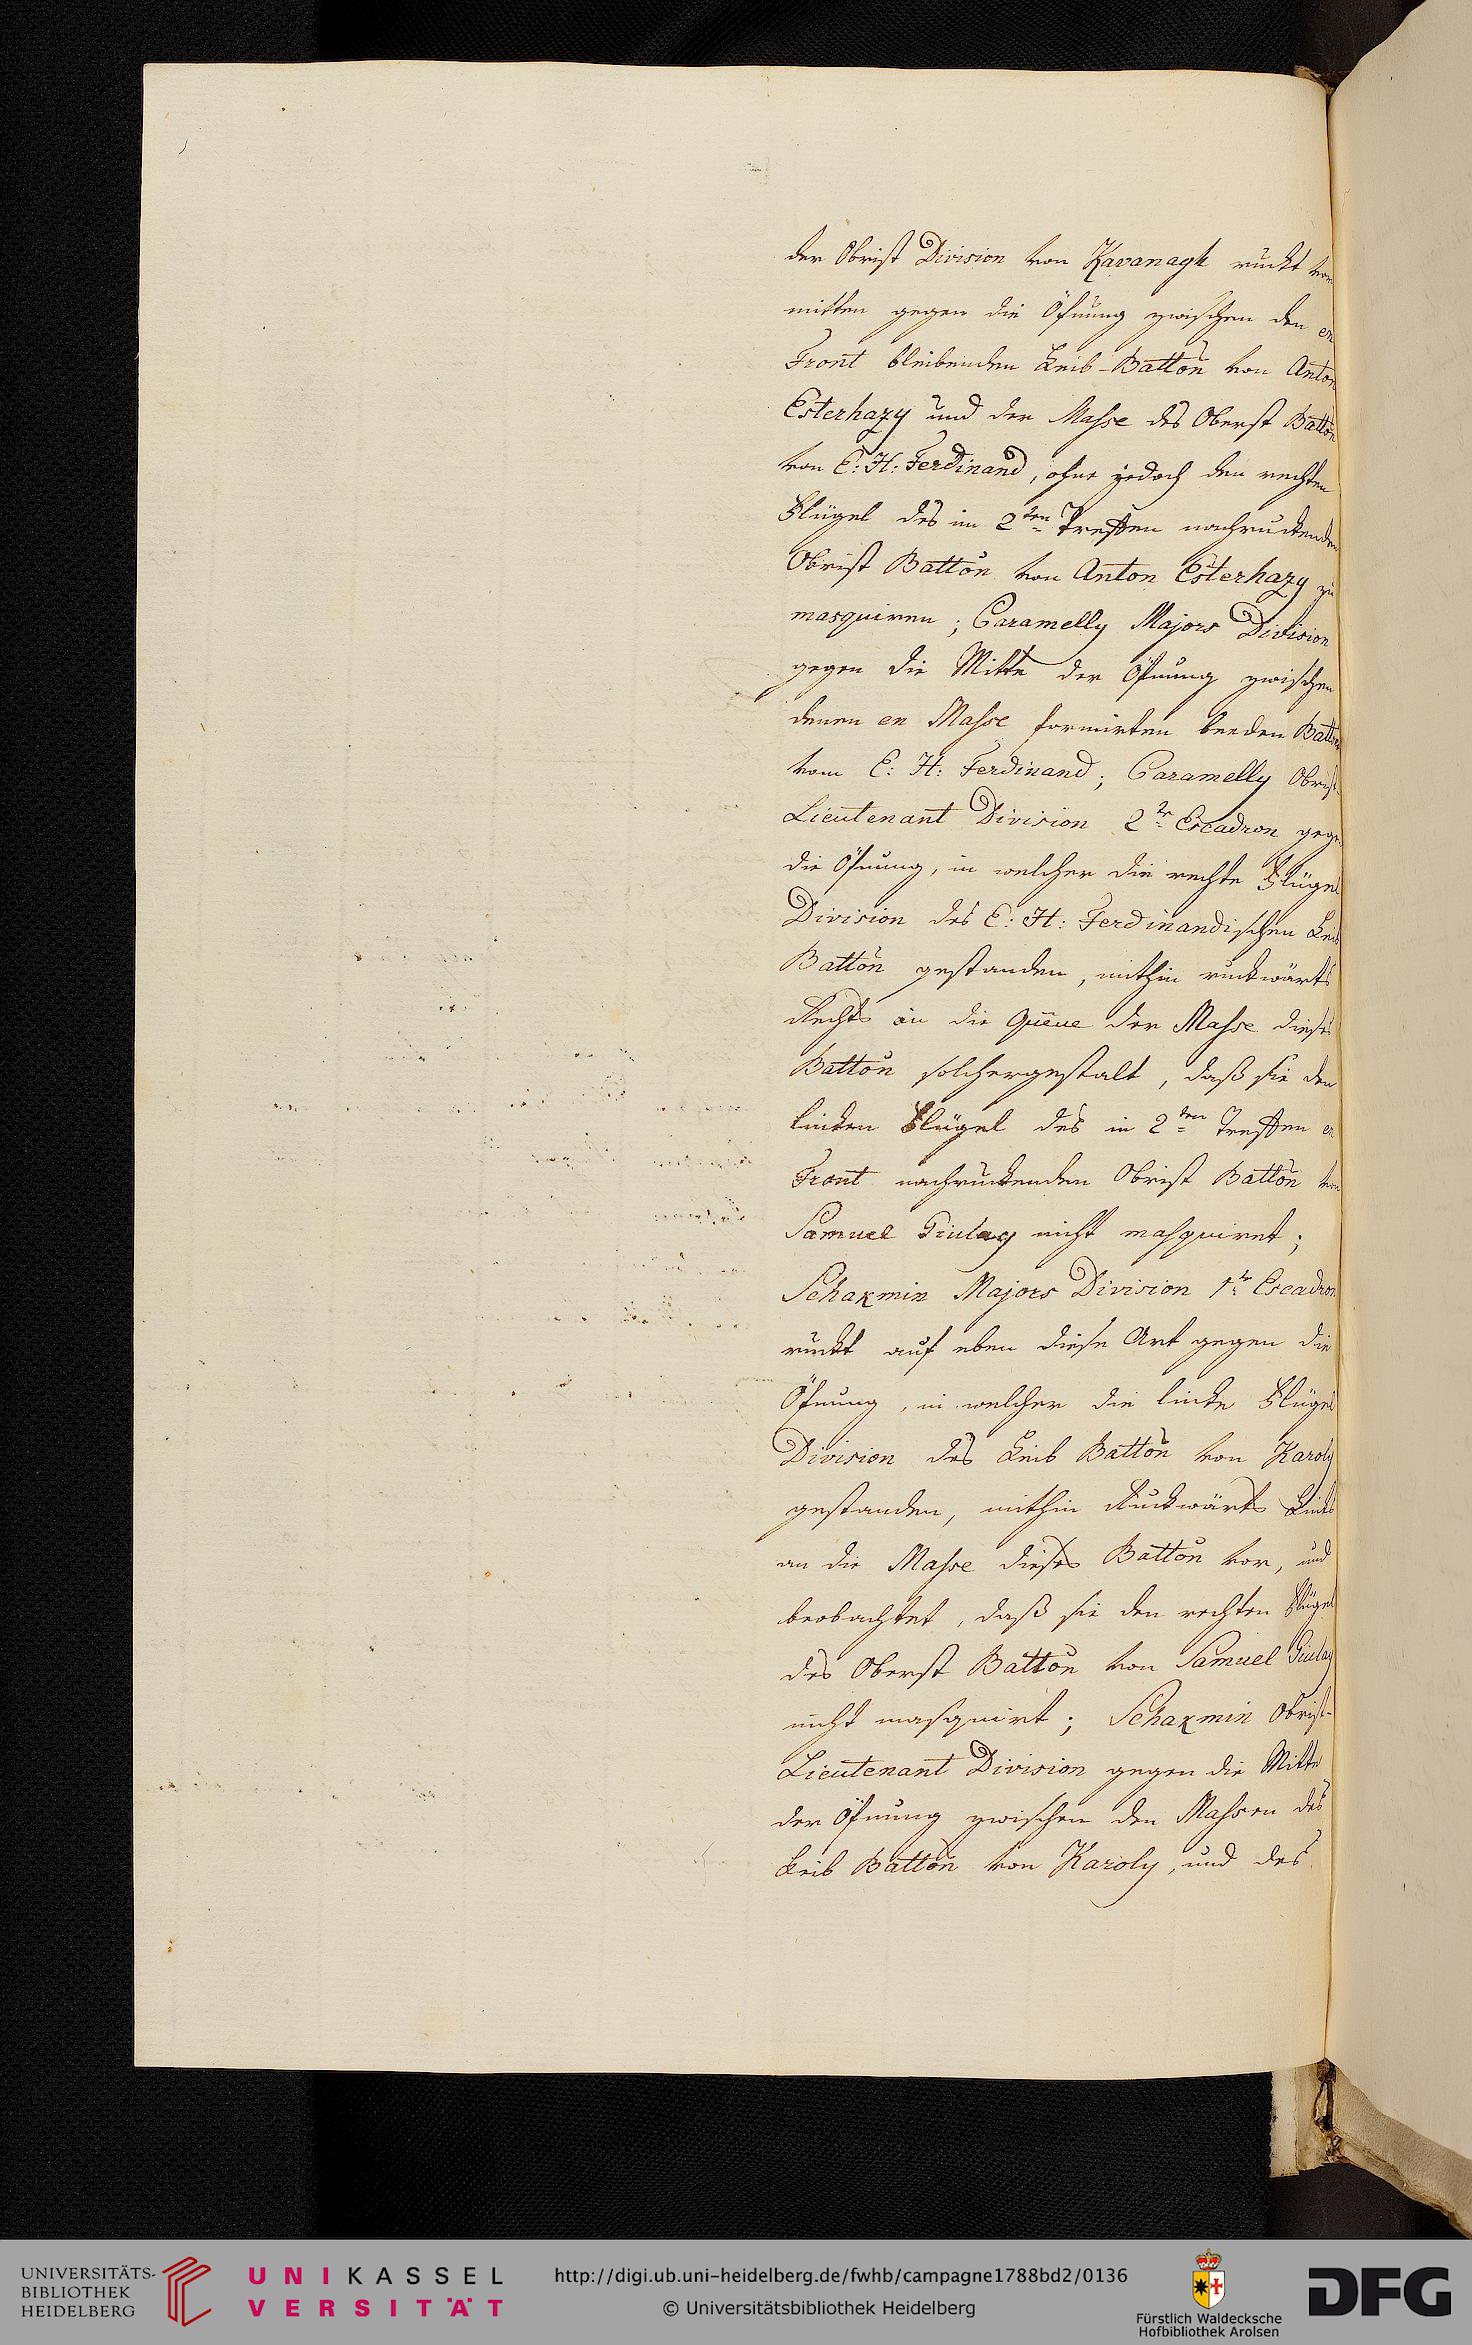 der Obrist Division von Kavanagh ruckt von
mitten gegen die Öfnung zwischen den en
Front bleibenden Leib-Batton von Anton
Esterhazy und der Masse des Oberst Batton
von E: H: Ferdinand, ohne jedoch den rechten
Flügel des im 2ten Treffen nachruckenden
Obrist Batton von Anton Esterhazy zu
masquiren; Caramelly Majors Division
gegen die Mitte der Öfnung zwischen
denen en Masse formirten beeden Batton
vom E: H: Ferdinand; Caramelly Obrist-
Lieutenant Division 2te Escadron gegen
die Öfnung, in welcher die rechte Flügel
Division des E: H: Ferdinandischen Leib
Batton gestanden, mithin ruckwärts
Rechts an die Queue der Masse dieses
Batton solchergestalt, daß sie den
linken Flügel des in 2ten Treffen en
Front nachruckenden Obrist Batton von
Samuel Giulay nicht masquiret;
Schakmin Majors Division 1te Escadron
ruckt auf eben diese Art gegen die
Öfnung, in welcher die linke Flügel
Division des Leib Batton von Karoly
gestanden, mithin Ruckwärts Links
an die Masse dieses Batton vor, und
beobachtet, daß sie den rechten Flügel
des Oberst Batton von Samuel Giulay
nicht masquirt; Schakmin Obrist-
Lieutenant Division gegen die Mitte
der Öfnung zwischen den Massen des
Leib Batton von Karoly, und des
UNIVERSITÄTS-
BIBLIOTHEK
HEIDELBERG
UNIKASSEL
VERSITÄT
http://digi.ub.uni-heidelberg.de/fwhb/campagne1788bd2/0136
© Universitätsbibliothek Heidelberg
Fürstlich Waldecksche
Hofbibliothek Arolsen
DFG